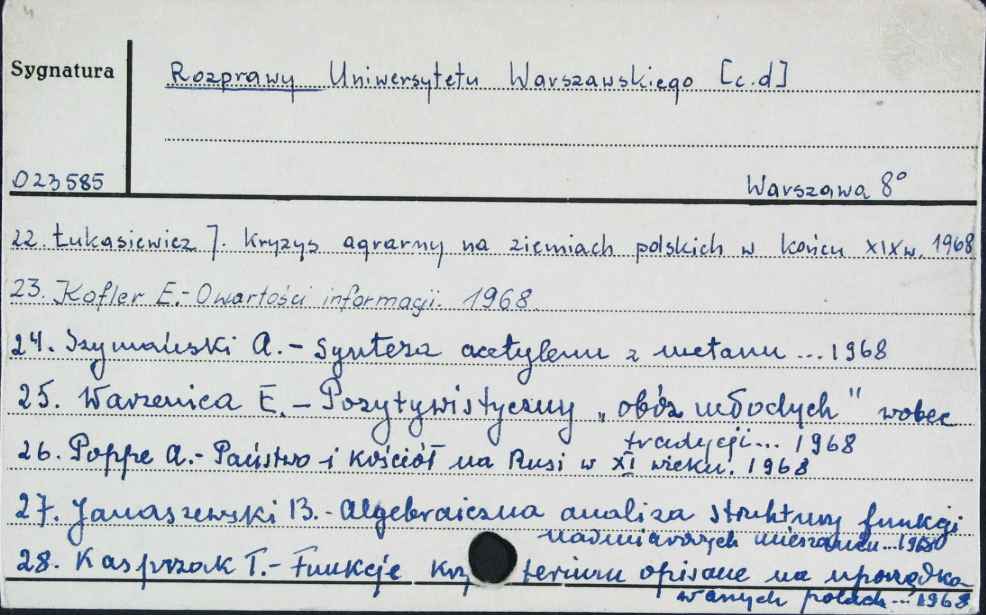 Sygnatura
Rozprawy Uniwersytetu Warszawskiego [c.d]
023585
Warszawa 8°
22. Łukasiewicz J. Kryzys agrarny na ziemiach polskich w końcu XIXw. 1968
23. Kofler E.- O wartości informacji. 1968
24. Szymański A.- Synteza acetylenu z metanu ... 1968
25. Warzenica E. - Pozytywistyczny "obóz młodych" wobec
tradycji... 1968
26. Poppe A.- Państwo i kościół na Rusi w XI wieku. 1968
27. Janaszewski B.- Algebraiczna analiza struktury funkcji
nadmiarowych mieszanin...
28. Kasprzak T.- Funkcje kry terium opisane na uporządko
wanych polach... 1968